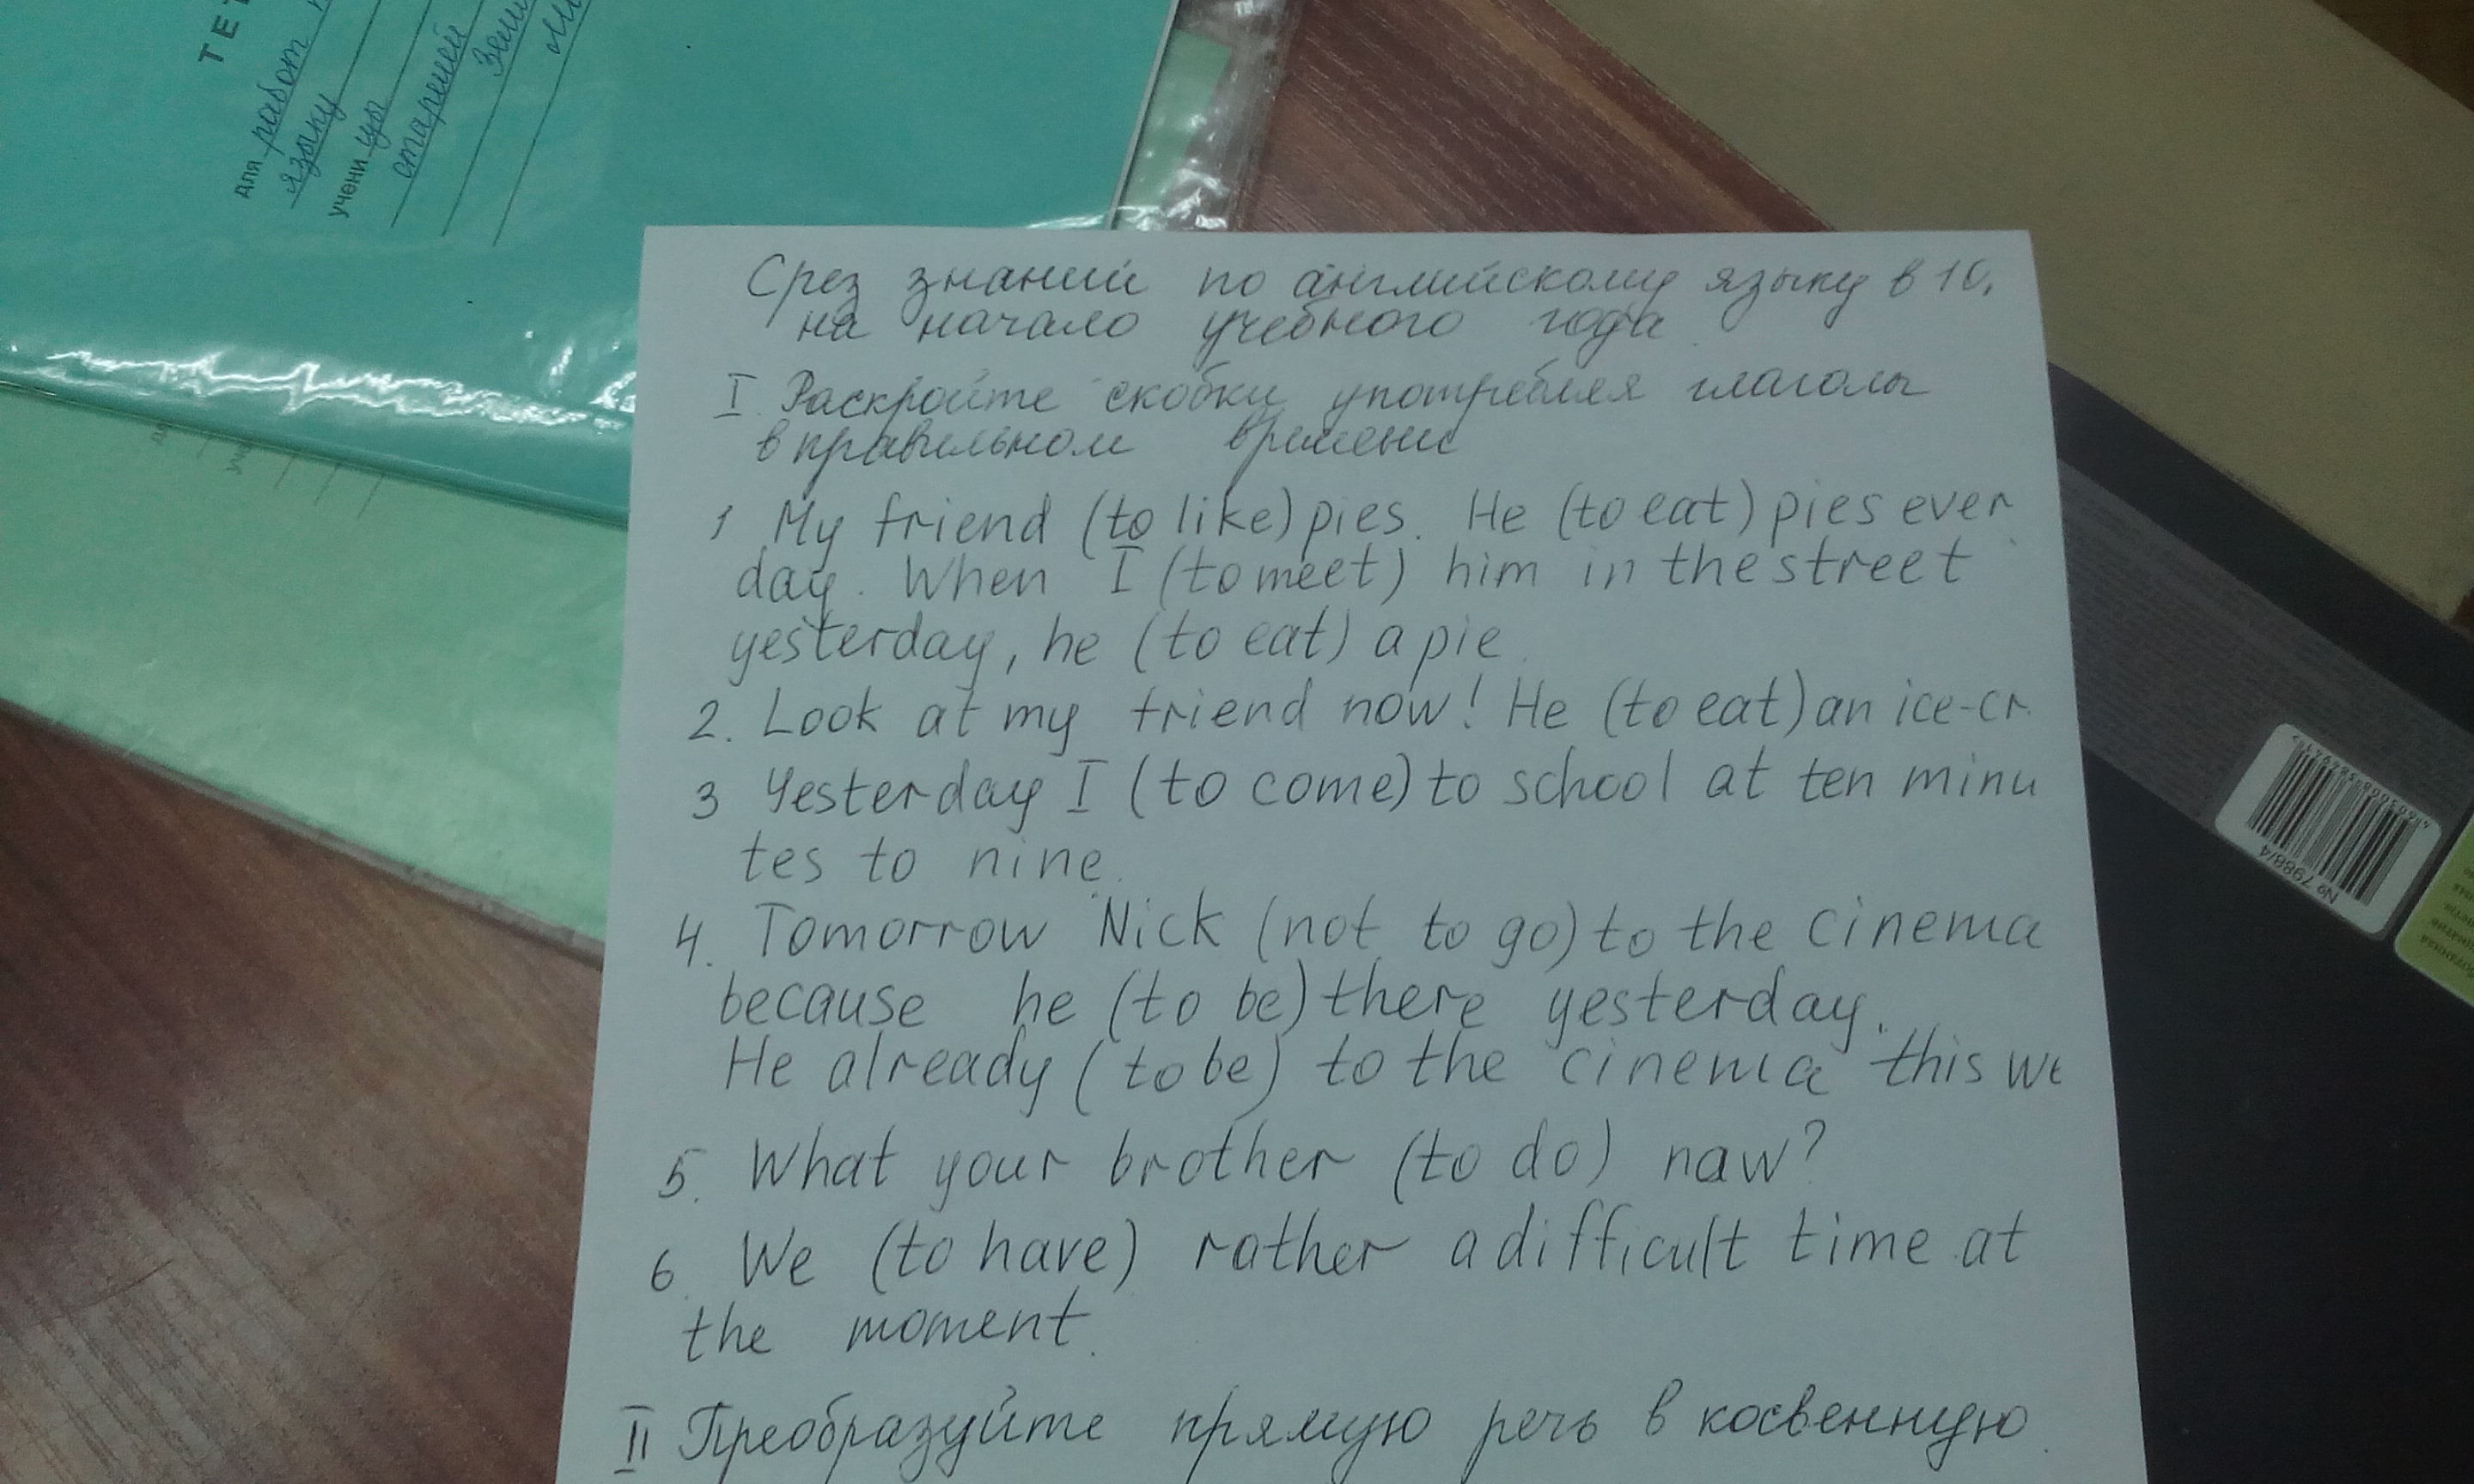 ТЕТ
для работ
языку
учени цы
старшей
Срез знаний по английскому языку в 10,
на начало учебного года
I. Раскройте скобки употребляя глаголы
в правильном времени
1 My friend (to like) pies. He (to eat) pies ever
day. When I (to meet) him in the street
yesterday, he (to eat) a pie.
2. Look at my friend now! He (to eat) an ice-cr
3 Yesterday I (to come) to school at ten minu
tes to nine.
4. Tomorrow Nick (not to go) to the cinema
because he (to be) there yesterday.
He already (to be) to the cinema this we
5. What your brother (to do) naw?
6. We (to have) rather a difficult time at
the moment.
II Преобразуйте прямую речь в косвенную.
№ 7988/4